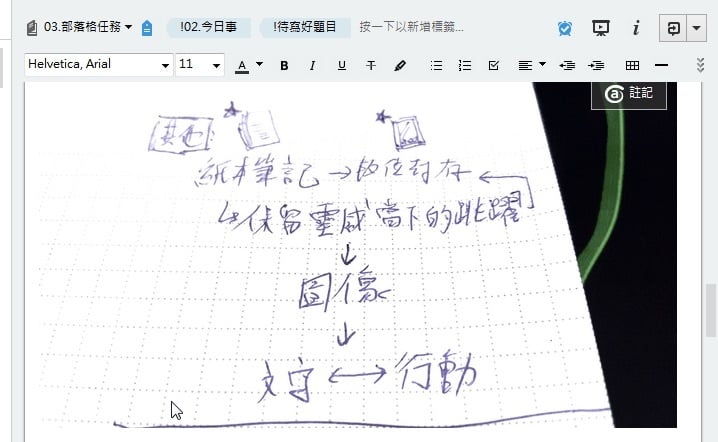 03.部落格任務 !02.今日事 !待寫好題目 按一下以新增標籤...
Helvetica, Arial 11 A B I U T
註記
其他
紙本筆記→數位封存
↳保留靈感當下的跳躍
↓
圖像
↓
文字↔行動